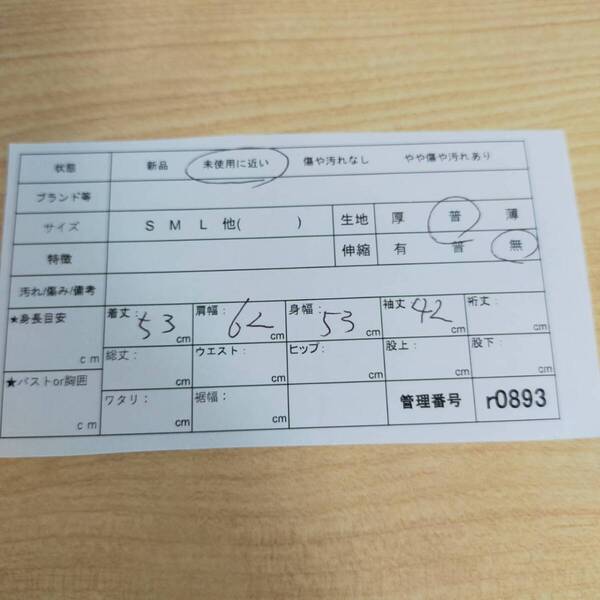 状態 新品 未使用に近い 傷や汚れなし やや傷や汚れあり
ブランド等
サイズ S M L 他( ) 生地 厚 普 薄
特徴 伸縮 有 普 無
汚れ/傷み/備考
★身長目安 cm 着丈: 53 cm 肩幅: 62 cm 身幅: 53 cm 袖丈 42 cm 裄丈: cm
総丈: cm ウエスト: cm ヒップ: cm 股上: cm 股下: cm
★バストor胸囲 cm ワタリ: cm 裾幅: cm 管理番号 r0893